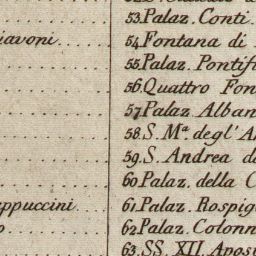 53. Palaz. Conti.
iavoni
54 Fontana di
55 Palaz. Pontifi
56. Quattro Fon
57 Palaz Alban
58. S. Mª. degl'A
59. S. Andrea d
60 Palaz. della C
ppuccini
61. Palaz. Rospig
62 Palaz. Colonn
63. SS. XII. Apos